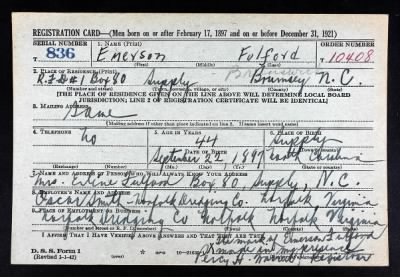 REGISTRATION CARD—(Men born on or after February 17, 1897 and on or before December 31, 1921)
SERIAL NUMBER 1. NAME (Print) ORDER NUMBER
836 Emerson Fulford 10408
2. PLACE OF RESIDENCE (Print)
R.F.D#1 Box 80 Supply Brunswick N.C.
[THE PLACE OF RESIDENCE GIVEN ON THE LINE ABOVE WILL DETERMINE LOCAL BOARD
JURISDICTION; LINE 2 OF REGISTRATION CERTIFICATE WILL BE IDENTICAL]
3. MAILING ADDRESS
Same
[Mailing address if other than place indicated on line 2. If same insert word same]
4. TELEPHONE 5. AGE IN YEARS 6. PLACE OF BIRTH
No 44 Supply
DATE OF BIRTH
September 22 1897 North Carolina
(Exchange) (Number) (Mo.) (Day) (Yr.) (State or country)
7. NAME AND ADDRESS OF PERSON WHO WILL ALWAYS KNOW YOUR ADDRESS
Mrs. Fulford Box 80, Supply, N.C.
8. EMPLOYER'S NAME AND ADDRESS
Oscar Smith - Norfolk Dredging Co. Norfolk, Virginia
9. PLACE OF EMPLOYMENT OR BUSINESS
Norfolk Dredging Co Norfolk Norfolk Virginia
I AFFIRM THAT I HAVE VERIFIED ABOVE ANSWERS AND THAT THEY ARE TRUE.
The mark of Emerson Fulford
D. S. S. Form 1
(Revised 1-1-42)
Percy H. Registrar